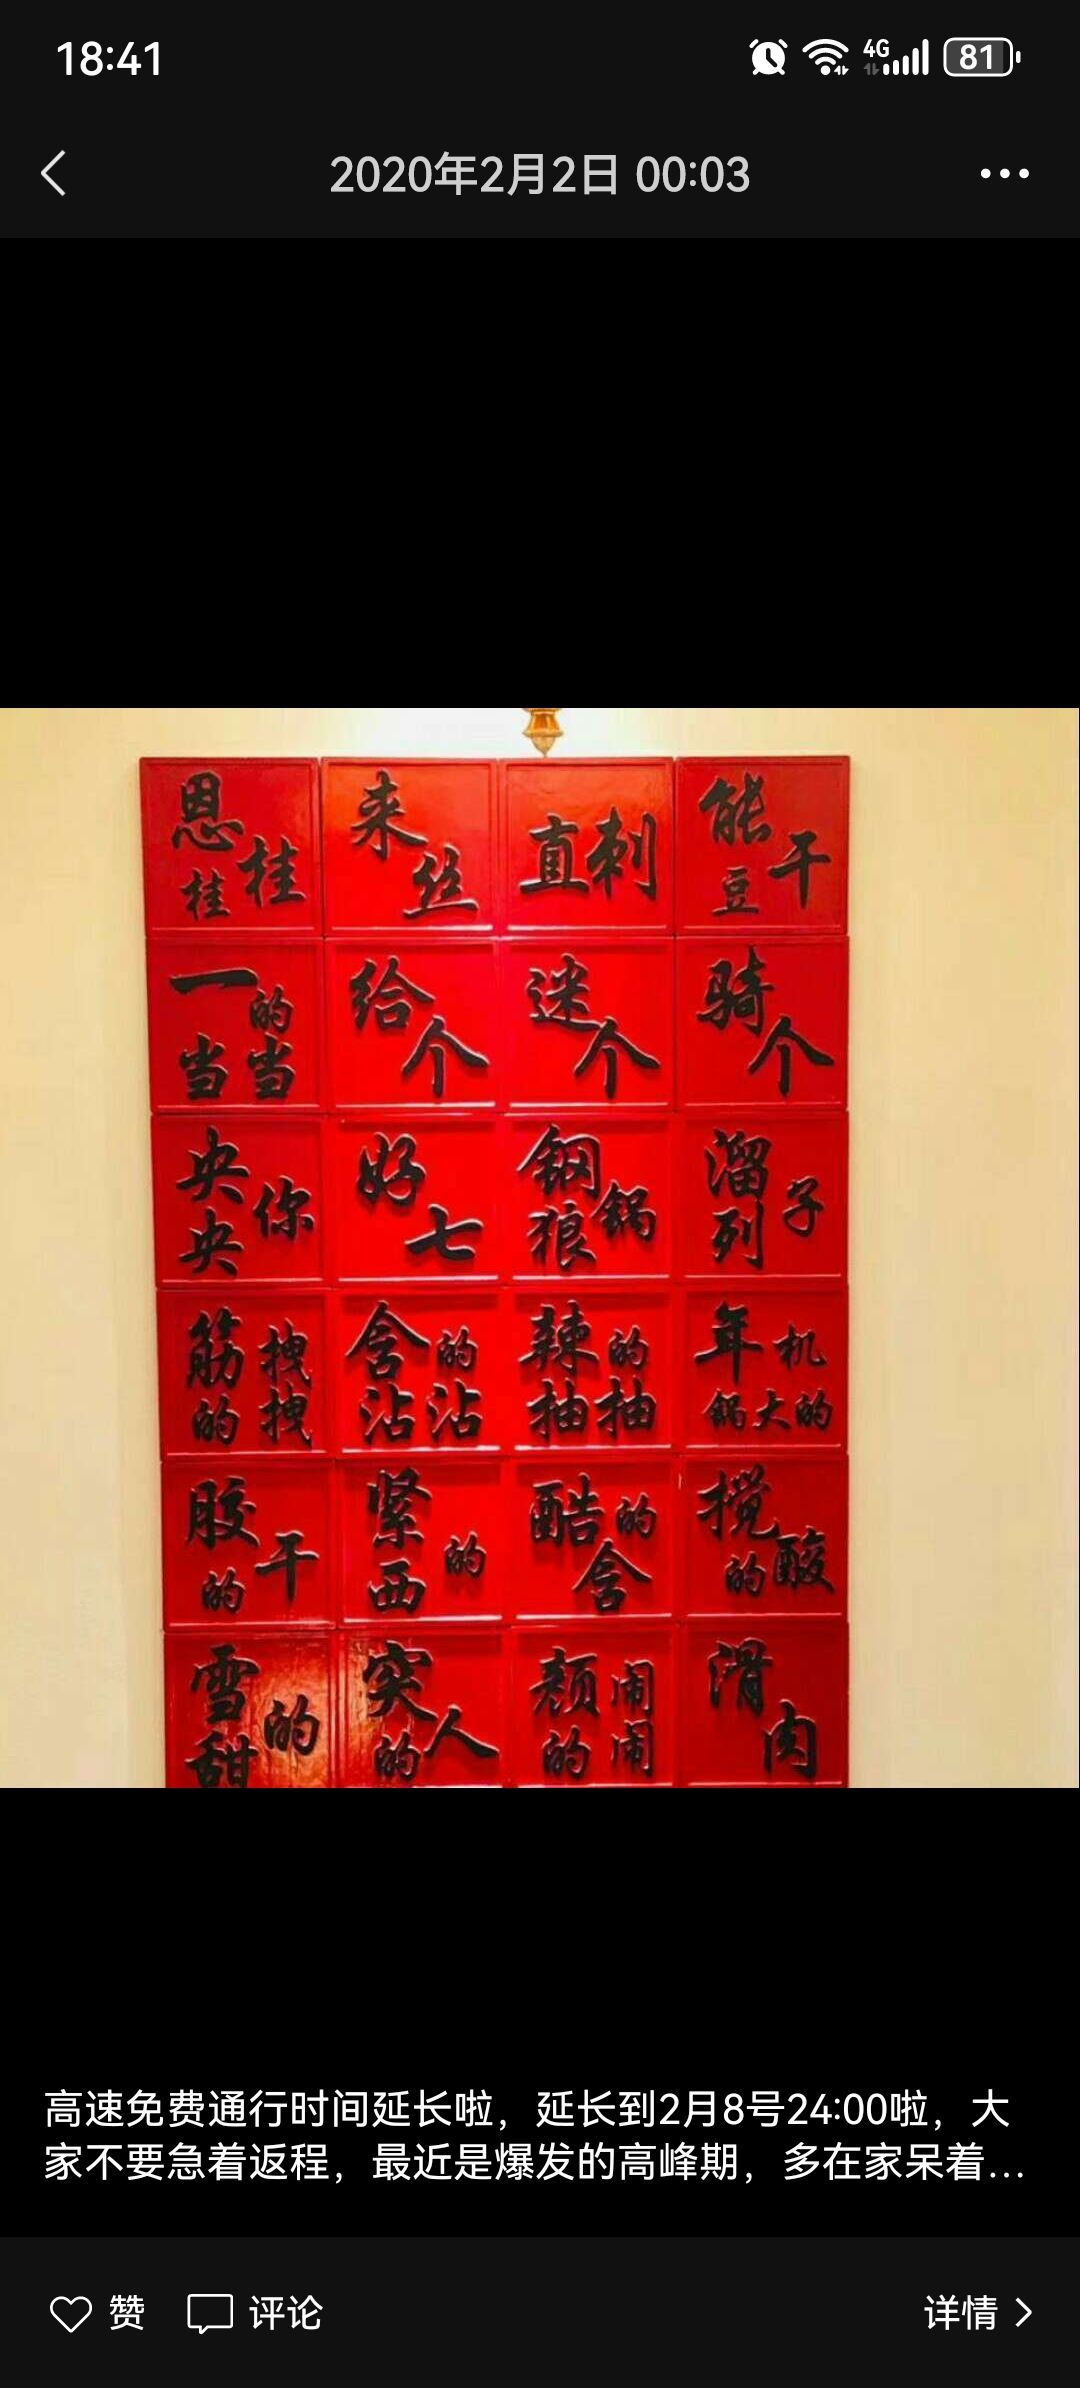 18:41
4G
81
2020年2月2日 00:03
恩桂桂
来丝
直刺
能干豆
一的当当
给个
迷个
骑个
央你央
好七
钢锅狼
溜子列
筋拽的拽
含的沾沾
辣的抽抽
年机锅大的
胶干的
紧的西
酷的含
搅酸的
雪的甜
突人的
颜闹的闹
滑肉
高速免费通行时间延长啦，延长到2月8号24:00啦，大
家不要急着返程，最近是爆发的高峰期，多在家呆着...
赞 评论 详情